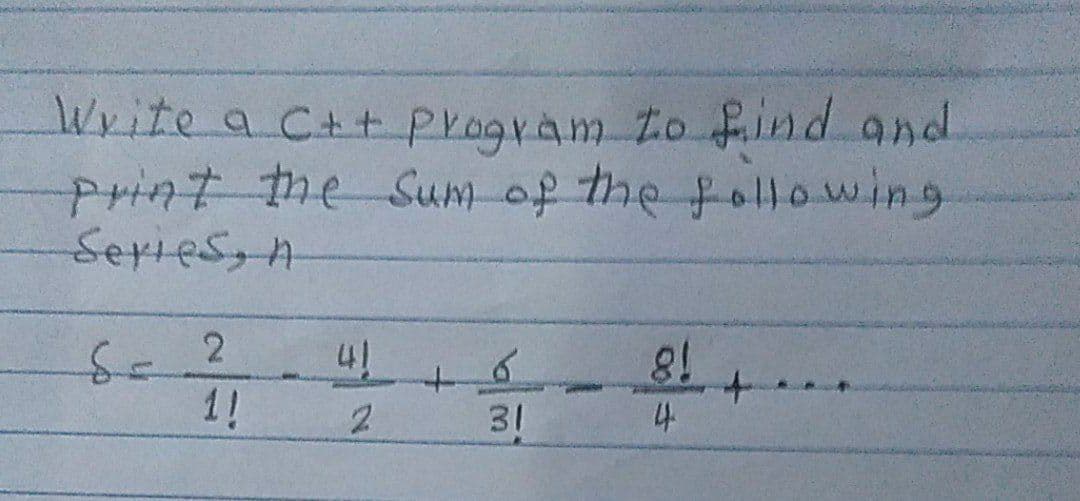 Write a C++ program to find and
print the sum of the following
Series, n
S = 2/1! - 4!/2 + 6/3! - 8!/4 + ...